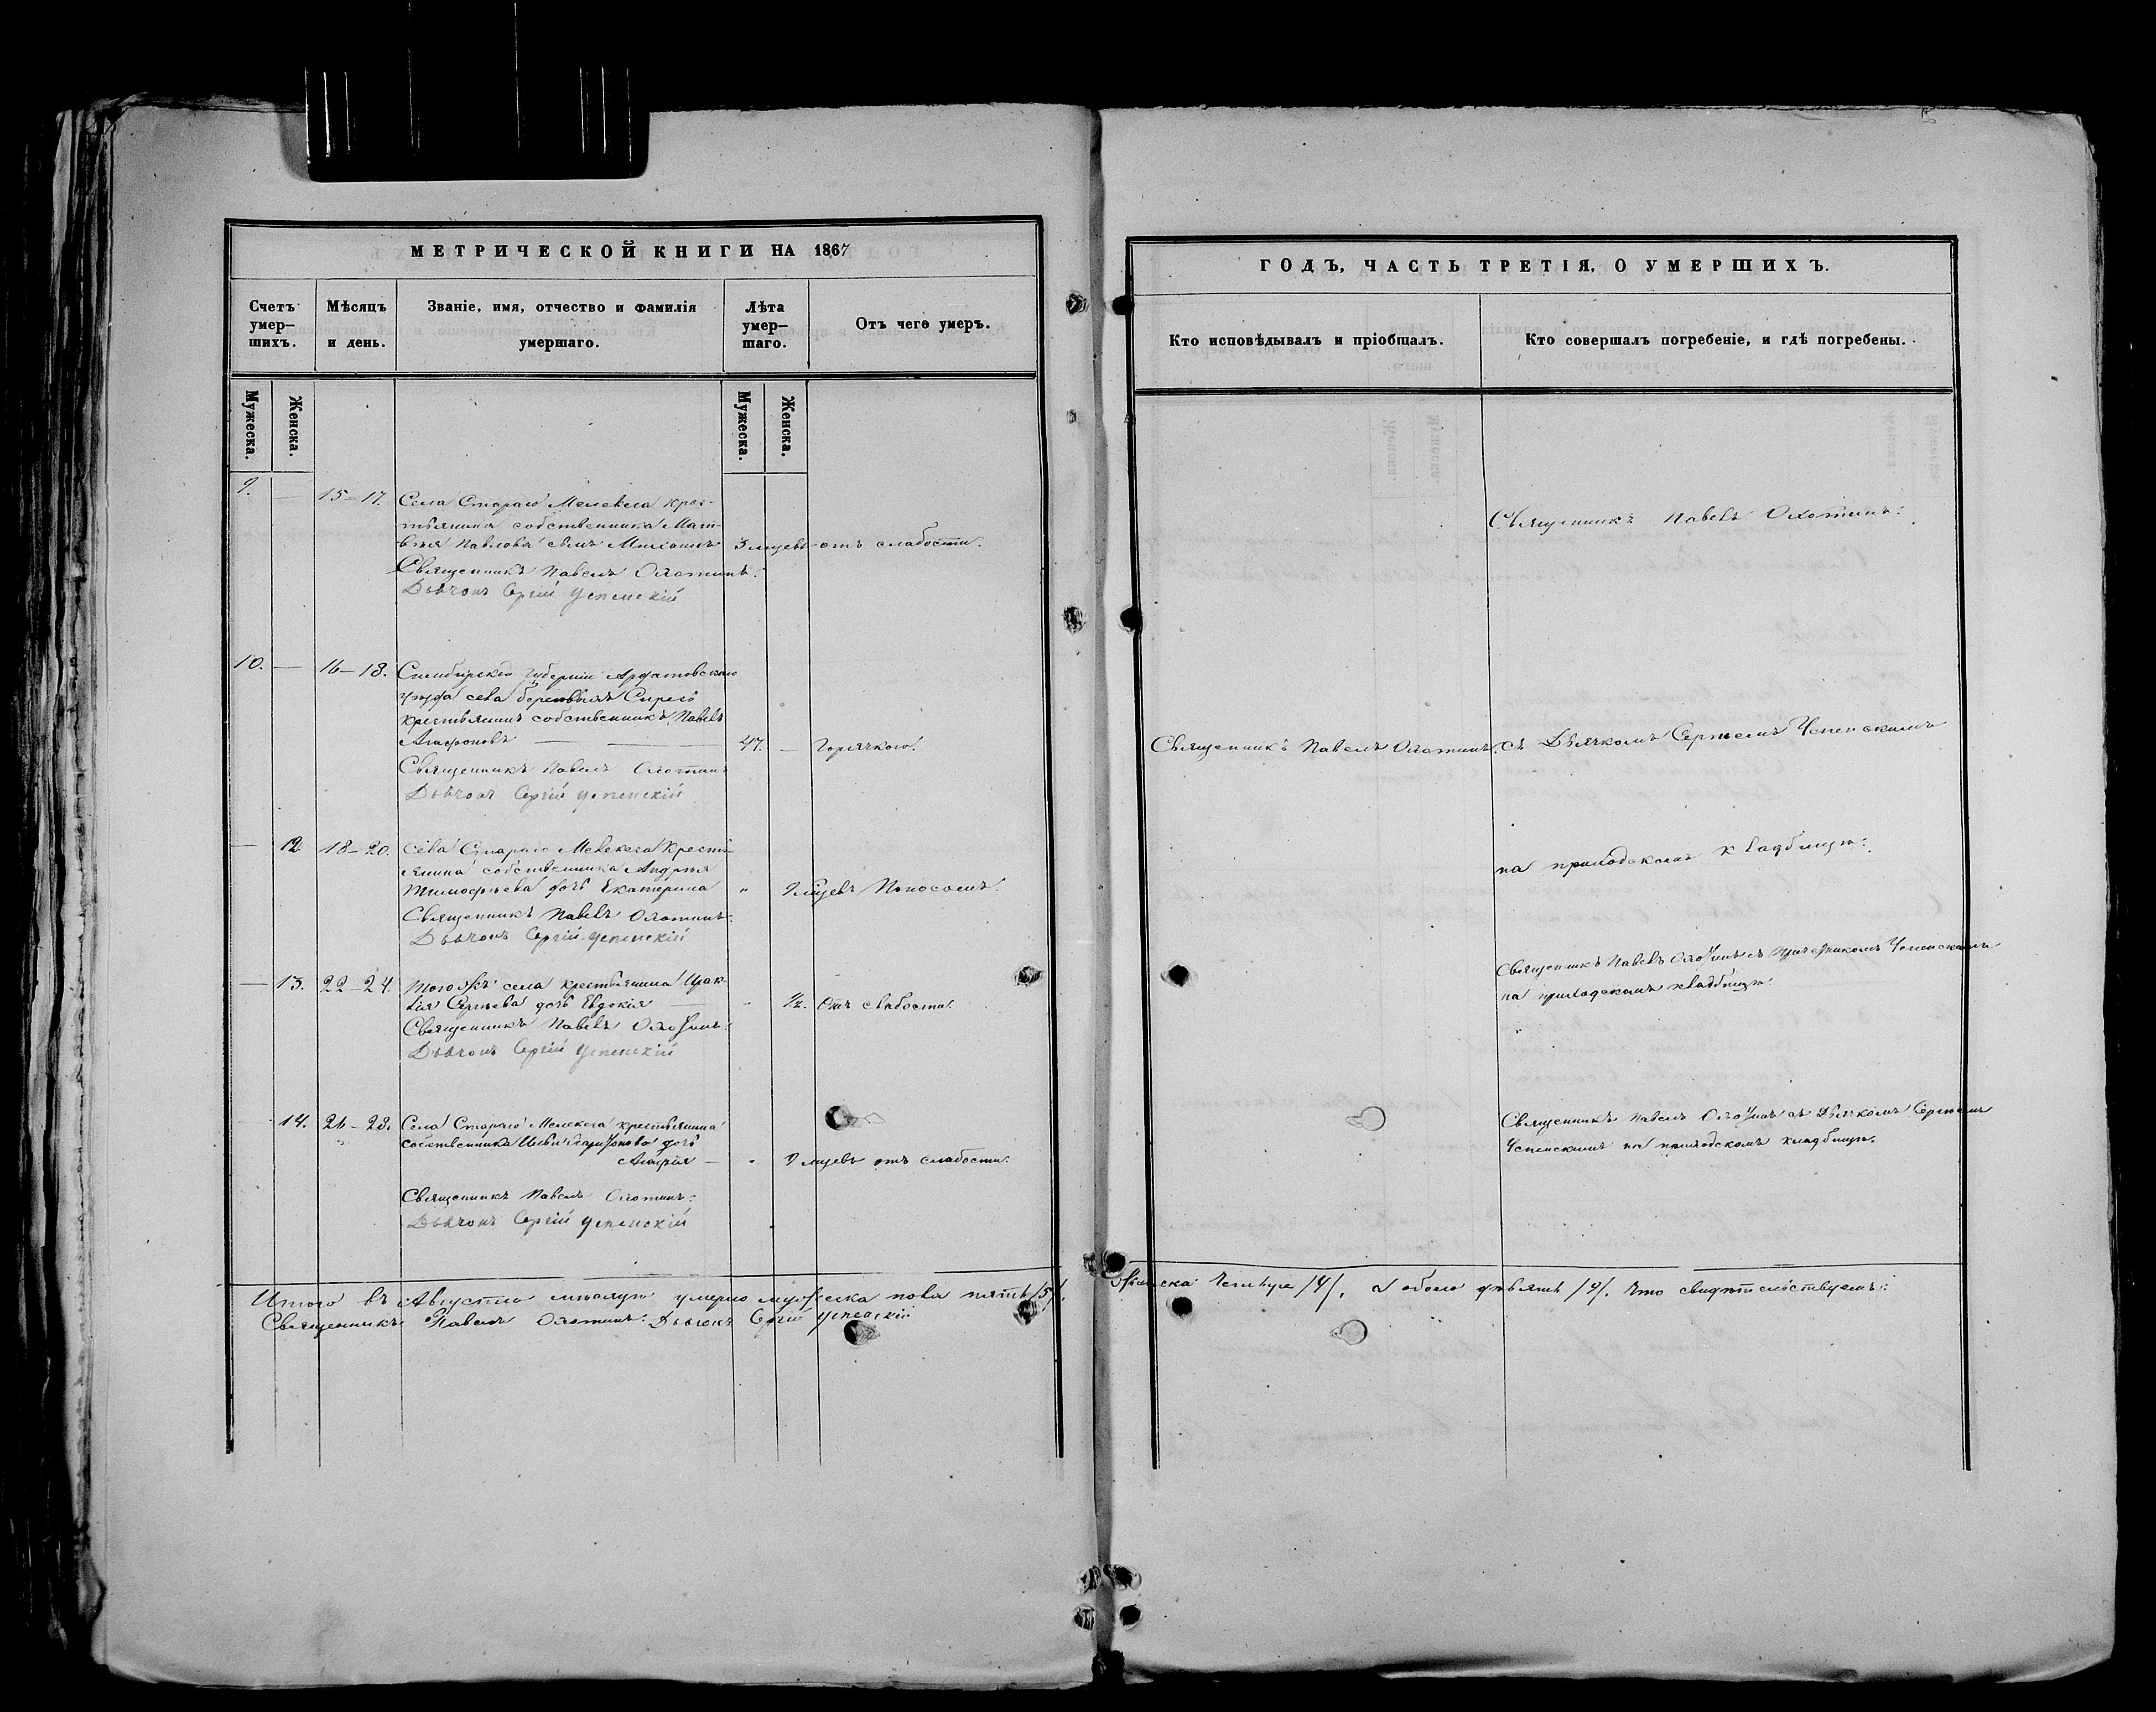 МЕТРИЧЕСКОЙ КНИГИ НА 1867
Счетъ умер-шихъ.
Мѣсяцъ и день.
Званіе, имя, отчество и фамилія умершаго.
Лѣта умер-шаго.
Отъ чего умеръ.
Мужеска.
Женска.
Мужеска.
Женска.
9. — 15–17. Села Стараго Мелекеса крес-
тьянина собственника Мат-
вѣя Павлова сынъ Михаилъ 3 мѣсяцевъ отъ слабости.
Священникъ Павелъ Охотинъ.
Дьячокъ Сергій Успенскій
10. — 16–18. Симбирской Губерніи Ардатовскаго
уѣзда села Сиресь
крестьянинъ собственникъ Павелъ
Агафоновъ — 47. — Горячкою.
Священникъ Павелъ Охотинъ
Дьячокъ Сергій Успенскій
— 12 18–20. Села Стараго Мелекеса Кресть-
янина собственника Андрея
Тимофѣева дочь Екатерина „ 9 мѣсяцевъ Поносомъ.
Священникъ Павелъ Охотинъ.
Дьячокъ Сергій Успенскій
— 13. 22–24. Того жъ села крестьянина Ирак-
лія Сергѣева дочь Евдокія — „ 1/2. Отъ слабости.
Священникъ Павелъ Охотинъ.
Дьячокъ Сергій Успенскій
14. 26–28. Села Стараго Мелекеса крестьянина
собственника Ильи Харитонова дочь
Агафія — „ 9 мѣсяцевъ отъ слабости.
Священникъ Павелъ Охотинъ.
Дьячокъ Сергій Успенскій
Итого въ Августѣ мѣсяцѣ умерло мужеска пола пять /5/.
Священникъ Павелъ Охотинъ. Дьячокъ Сергій Успенскій
ГОДЪ, ЧАСТЬ ТРЕТІЯ, О УМЕРШИХЪ.
Кто исповѣдывалъ и пріобщалъ.
Кто совершалъ погребеніе, и гдѣ погребены.
Священникъ Павелъ Охотинъ.
Священникъ Павелъ Охотинъ. съ Дьячкомъ Сергѣемъ Успенскимъ
на приходскомъ кладбищѣ.
Священникъ Павелъ Охотинъ съ Причетникомъ Успенскимъ
на приходскомъ кладбищѣ.
Священникъ Павелъ Охотинъ съ Дьячкомъ Сергѣемъ
Успенскимъ на приходскомъ кладбищѣ.
женска четыре /4/. А обоего девять /9/. Что свидѣтельствуемъ: